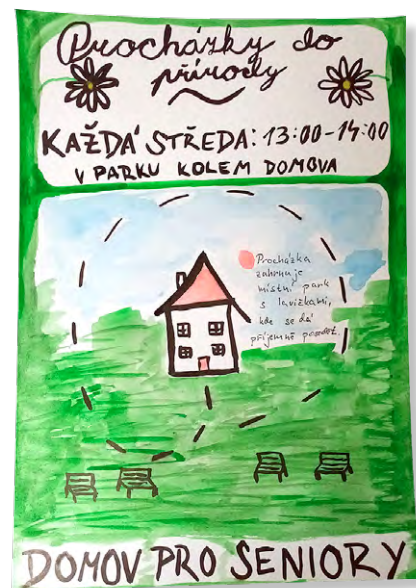 Procházky do
přírody
KAŽDÁ STŘEDA: 13:00-14:00
V PARKU KOLEM DOMOVA
Procházka
zahrnuje
místní park
s lavičkami,
kde se dá
příjemně posedět.
DOMOV PRO SENIORY